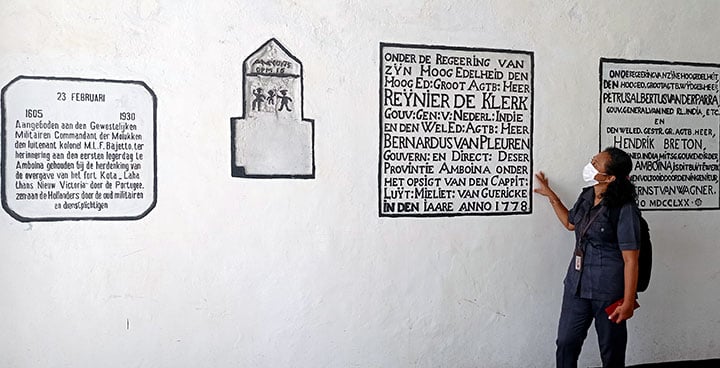 23 FEBRUARI
1605 1930
Aangeboden aan den Gewestelijken
Militairen Commandant der Molukken
den luitenant kolonel M.L.F. Bajetto, ter
herinnering aan den eersten legerdag te
Amboina gehouden bij de herdenking van
de overgave van het fort Kota - Laha
thans Nieuw Victoria door de Portugee.
zen aan de Hollanders door de oud militairen
en dienstplichtigen
ONDER DE REGEERING VAN
ZŸN HOOG EDELHEID DEN
HOOG ED: GROOT AGTB: HEER
REYNIER DE KLERK
GOUV: GEN: V: NEDERL: INDIE
EN DEN WEL ED: AGTB: HEER
BERNARDUS VAN PLEUREN
GOUVERN: EN DIRECT: DESER
PROVINTIE AMBOINA ONDER
HET OPSIGT VAN DEN CAPPIT:
LUŸT: MIELIET: VAN GUERICKE
IN DEN JAARE ANNO 1778
ONDE REGEERING VAN ZYNE HOOG EDELHEIT
DEN HOOG ED. GROOT AGTB. WYDGEB. HEER
PETRUS ALBERTUS VAN DER PARRA
GOUV. GENERAL VAN NED. INDIA, ETC.
EN DEN WEL ED. GESTR. GR. AGTB. HEER,
HENDRIK BRETON,
AMBOINA IS DIT BUITEWERK
ERNST VAN WAGNER.
O MDCCLXX